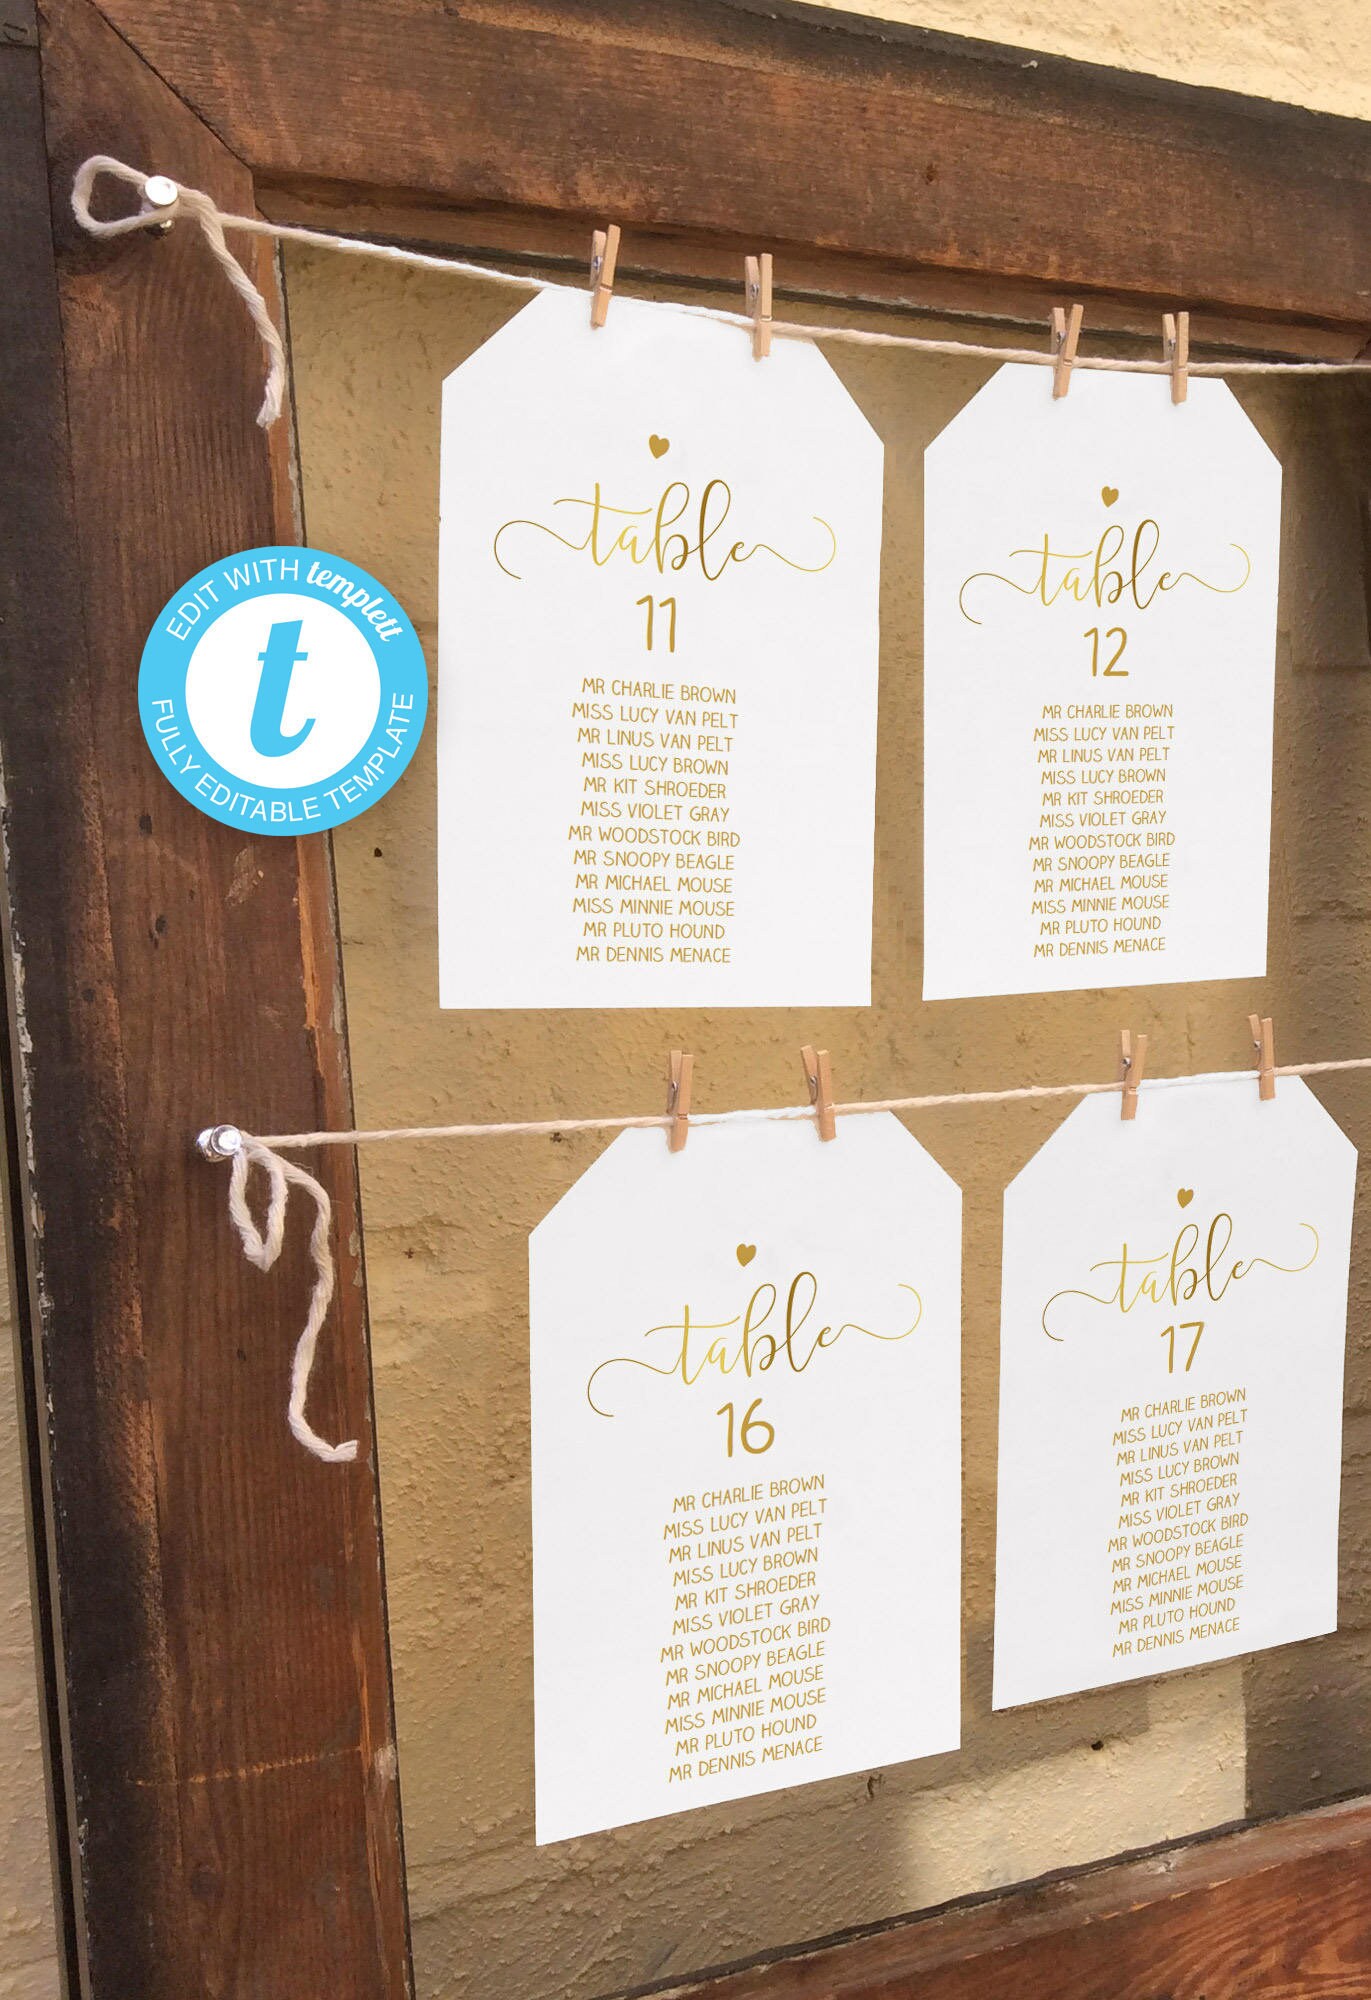 EDIT WITH templett
t
FULLY EDITABLE TEMPLATE
table
11
MR CHARLIE BROWN
MISS LUCY VAN PELT
MR LINUS VAN PELT
MISS LUCY BROWN
MR KIT SHROEDER
MISS VIOLET GRAY
MR WOODSTOCK BIRD
MR SNOOPY BEAGLE
MR MICHAEL MOUSE
MISS MINNIE MOUSE
MR PLUTO HOUND
MR DENNIS MENACE
table
12
MR CHARLIE BROWN
MISS LUCY VAN PELT
MR LINUS VAN PELT
MISS LUCY BROWN
MR KIT SHROEDER
MISS VIOLET GRAY
MR WOODSTOCK BIRD
MR SNOOPY BEAGLE
MR MICHAEL MOUSE
MISS MINNIE MOUSE
MR PLUTO HOUND
MR DENNIS MENACE
table
16
MR CHARLIE BROWN
MISS LUCY VAN PELT
MR LINUS VAN PELT
MISS LUCY BROWN
MR KIT SHROEDER
MISS VIOLET GRAY
MR WOODSTOCK BIRD
MR SNOOPY BEAGLE
MR MICHAEL MOUSE
MISS MINNIE MOUSE
MR PLUTO HOUND
MR DENNIS MENACE
table
17
MR CHARLIE BROWN
MISS LUCY VAN PELT
MR LINUS VAN PELT
MISS LUCY BROWN
MR KIT SHROEDER
MISS VIOLET GRAY
MR WOODSTOCK BIRD
MR SNOOPY BEAGLE
MR MICHAEL MOUSE
MISS MINNIE MOUSE
MR PLUTO HOUND
MR DENNIS MENACE